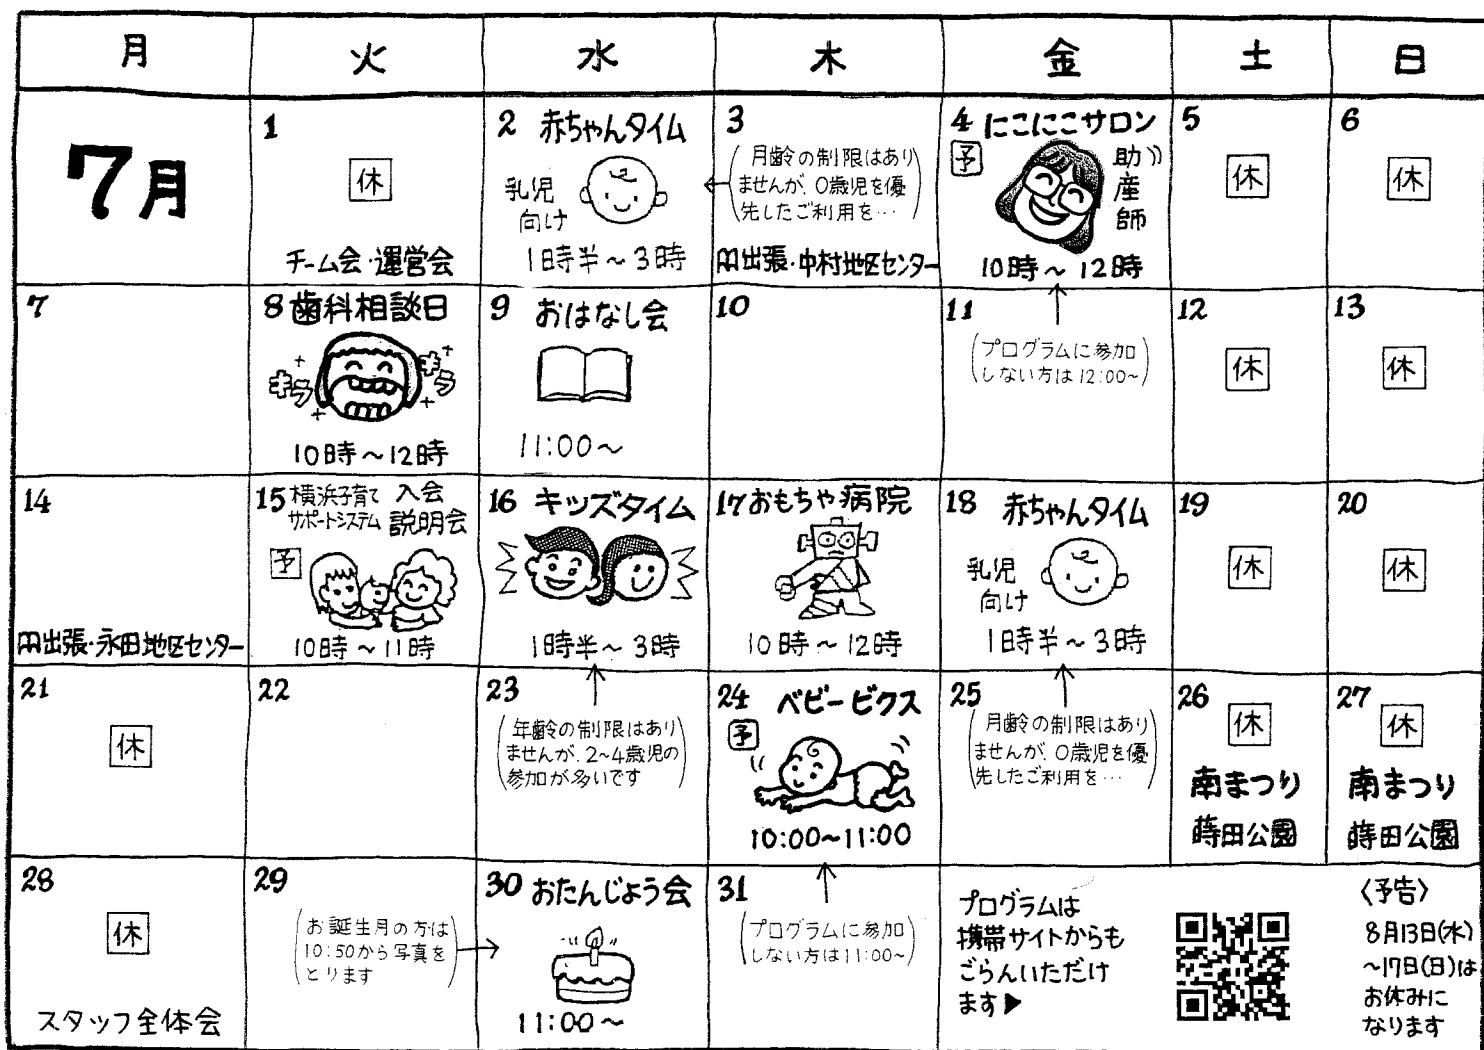 月
火
水
木
金
土
日
7月
1
休
チーム会・運営会
2 赤ちゃんタイム
乳児
向け
1時半～3時
3
月齢の制限はあり
ませんが、0歳児を優
先したご利用を…
出張・中村地区センター
4 にこにこサロン
予
助産師
10時～12時
5
休
6
休
7
8 歯科相談日
キラ
キラ
10時～12時
9 おはなし会
11:00～
10
11
プログラムに参加
しない方は12:00～
12
休
13
休
14
出張・永田地区センター
15 横浜子育て 入会
サポートシステム 説明会
予
10時～11時
16 キッズタイム
1時半～3時
17 おもちゃ病院
10時～12時
18 赤ちゃんタイム
乳児
向け
1時半～3時
19
休
20
休
21
休
22
23
年齢の制限はあり
ませんが、2~4歳児の
参加が多いです
24 ベビービクス
予
10:00~11:00
25
月齢の制限はあり
ませんが、0歳児を優
先したご利用を…
26
休
南まつり
蒔田公園
27
休
南まつり
蒔田公園
28
休
スタッフ全体会
29
お誕生月の方は
10:50から写真を
とります
30 おたんじょう会
11:00～
31
プログラムに参加
しない方は11:00～
プログラムは
携帯サイトからも
ごらんいただけ
ます▶
〈予告〉
8月13日(水)
～17日(日)は
お休みに
なります